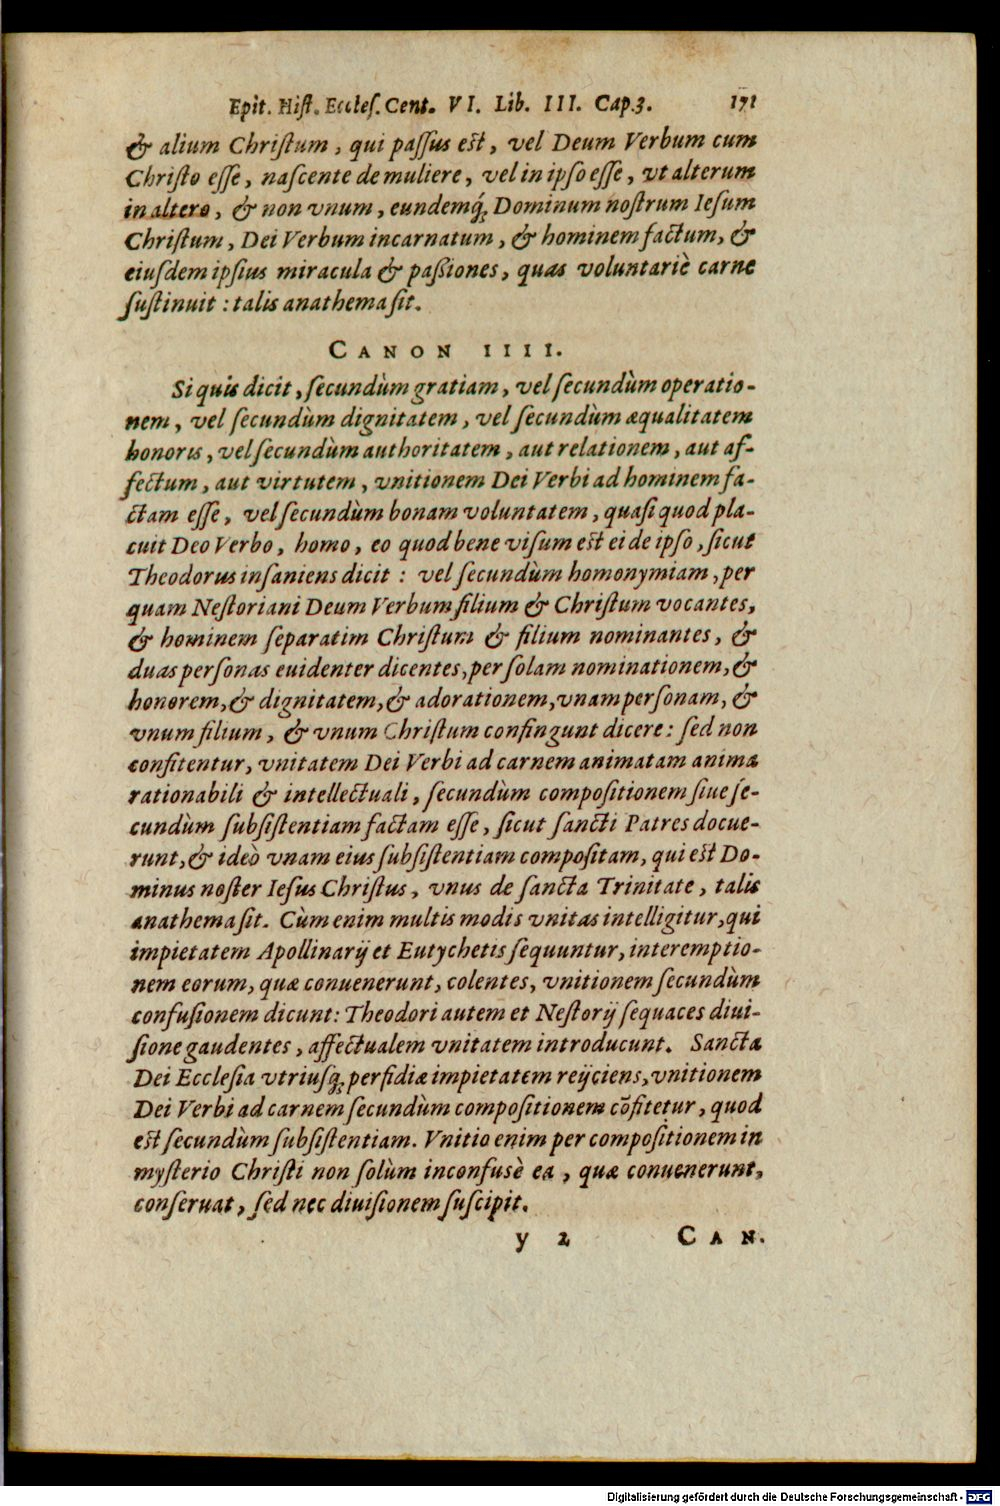 Epit. Hiſt. Eccleſ. Cent. VI. Lib. III. Cap. 3. 171
& alium Chriſtum, qui paſſus eſt, vel Deum Verbum cum
Chriſto eſſe, naſcente de muliere, vel in ipſo eſſe, vt alterum
in altero, & non vnum, eundemq́; Dominum noſtrum Ieſum
Chriſtum, Dei Verbum incarnatum, & hominem factum, &
eiuſdem ipſius miracula & paßiones, quas voluntariè carne
ſuſtinuit : talis anathema ſit.
CANON IIII.
Si quis dicit, ſecundùm gratiam, vel ſecundùm operatio-
nem, vel ſecundùm dignitatem, vel ſecundùm æqualitatem
honoris, vel ſecundùm authoritatem, aut relationem, aut af-
fectum, aut virtutem, vnitionem Dei Verbi ad hominem fa-
ctam eſſe, vel ſecundùm bonam voluntatem, quaſi quod pla-
cuit Deo Verbo, homo, eo quod bene viſum eſt ei de ipſo, ſicut
Theodorus inſaniens dicit : vel ſecundùm homonymiam, per
quam Neſtoriani Deum Verbum filium & Chriſtum vocantes,
& hominem ſeparatim Chriſtum & filium nominantes, &
duas perſonas euidenter dicentes, per ſolam nominationem, &
honorem, & dignitatem, & adorationem, vnam perſonam, &
vnum filium, & vnum Chriſtum confingunt dicere: ſed non
confitentur, vnitatem Dei Verbi ad carnem animatam anima
rationabili & intellectuali, ſecundùm compoſitionem ſiue ſe-
cundùm ſubſiſtentiam factam eſſe, ſicut ſancti Patres docue-
runt, & ideò vnam eius ſubſiſtentiam compoſitam, qui eſt Do-
minus noſter Ieſus Chriſtus, vnus de ſancta Trinitate, talis
anathema ſit. Cùm enim multis modis vnitas intelligitur, qui
impietatem Apollinarij et Eutychetis ſequuntur, interemptio-
nem eorum, quæ conuenerunt, colentes, vnitionem ſecundùm
confuſionem dicunt: Theodori autem et Neſtorij ſequaces diui-
ſione gaudentes, affectualem vnitatem introducunt. Sancta
Dei Eccleſia vtriuſq; perfidiæ impietatem reijciens, vnitionem
Dei Verbi ad carnem ſecundùm compoſitionem cõfitetur, quod
eſt ſecundùm ſubſiſtentiam. Vnitio enim per compoſitionem in
myſterio Chriſti non ſolùm inconfusè ea, quæ conuenerunt,
conſeruat, ſed nec diuiſionem ſuſcipit.
y 2 CAN.
Digitalisierung gefördert durch die Deutsche Forschungsgemeinschaft - DFG